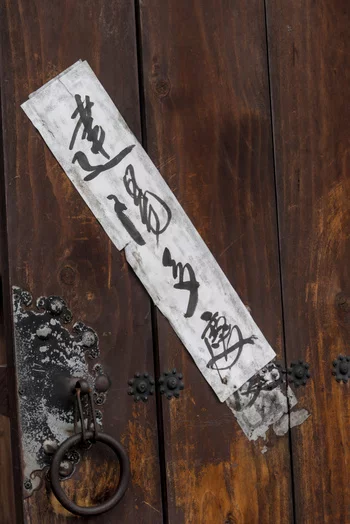 建陽多慶